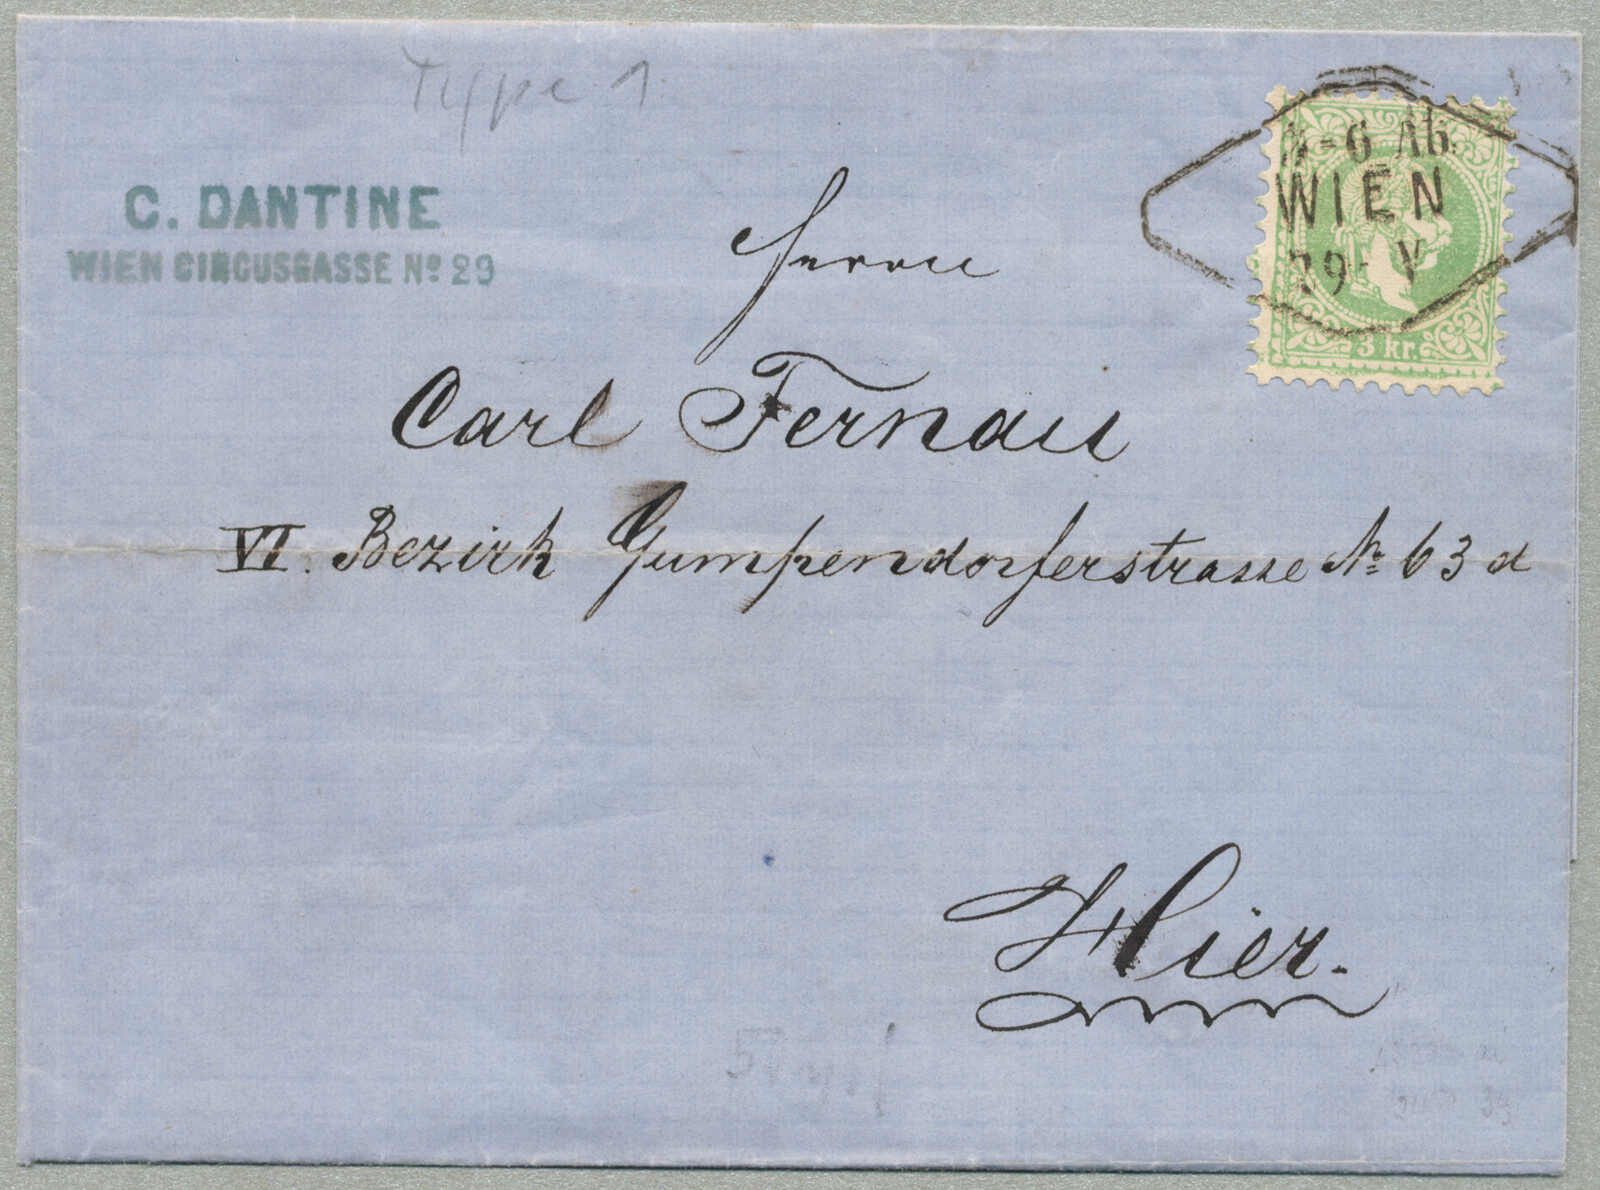 Type 1.
C. DANTINE
WIEN CIRCUSGASSE Nº 29
-6 Ab.
WIEN
29 V
3 kr.
Herrn
Carl Fernau
VI. Bezirk Gumpendorferstrasse Nº 63 d
Hier.